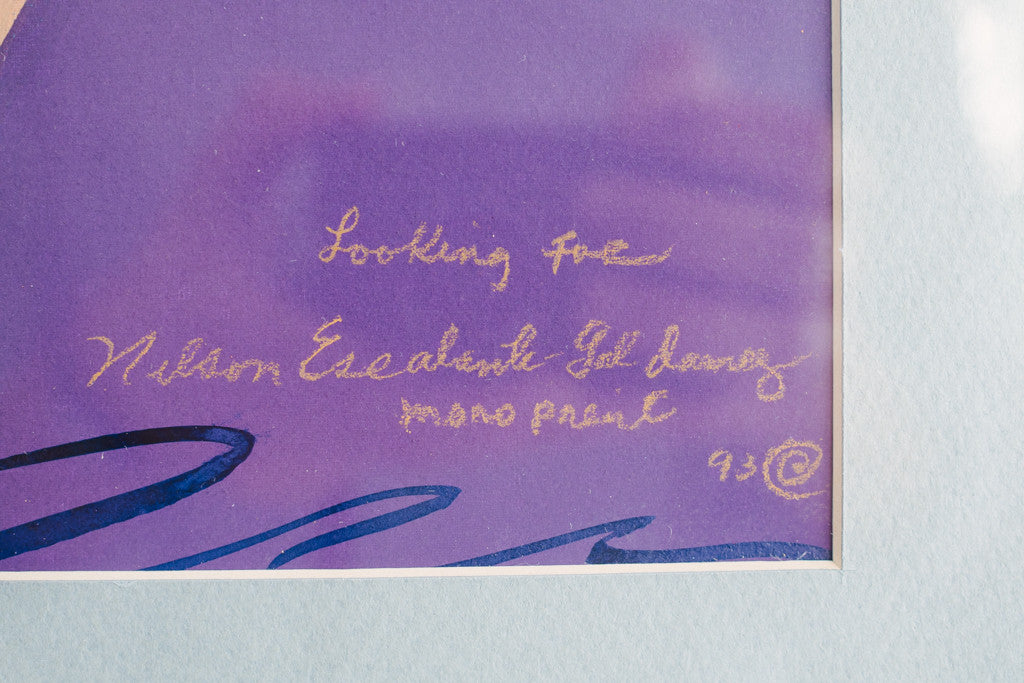 Looking For
Nelson Escalante Goldamez
mono print
93 ©